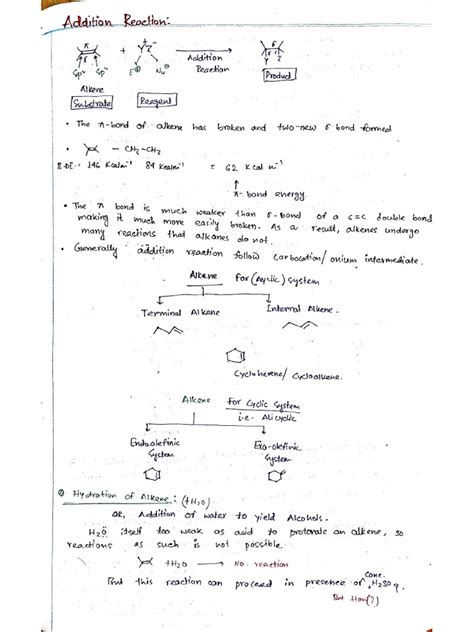 Addition Reaction:
π
σ
sp² sp²
+
Y⁺ Z⁻
E⊕ Nu⊖
Addition
Reaction
σ σ
Y Z
Product
Alkene
Substrate
Reagent
• The π-bond of alkene has broken and two-new σ bond formed
• — CH₂-CH₂
B.DE:- 146 Kcalm⁻¹ 84 Kcalm⁻¹ = 62 Kcal m⁻¹
π-bond energy
• The π bond is much weaker than σ-bond of a C=C double bond
making it much more easily broken. As a result, alkenes undergo
many reactions that alkanes do not.
• Generally addition reaction follow carbocation/onium intermediate.
Alkene for (Acyclic) system
Terminal Alkene
Internal Alkene.
Cyclohexene/ Cycloalkene.
Alkene For Cyclic System
i.e- Alicyclic
Endo olefinic
System
Exo-olefinic
System
Hydration of Alkene: (+H₂O)
OR, Addition of water to yield Alcohols.
H₂Ö itself too weak as acid to protonate an alkene, so
reactions as such is not possible.
+H₂O → No reaction
But this reaction can proceed in presence of Conc. H₂SO₄.
But How(?)